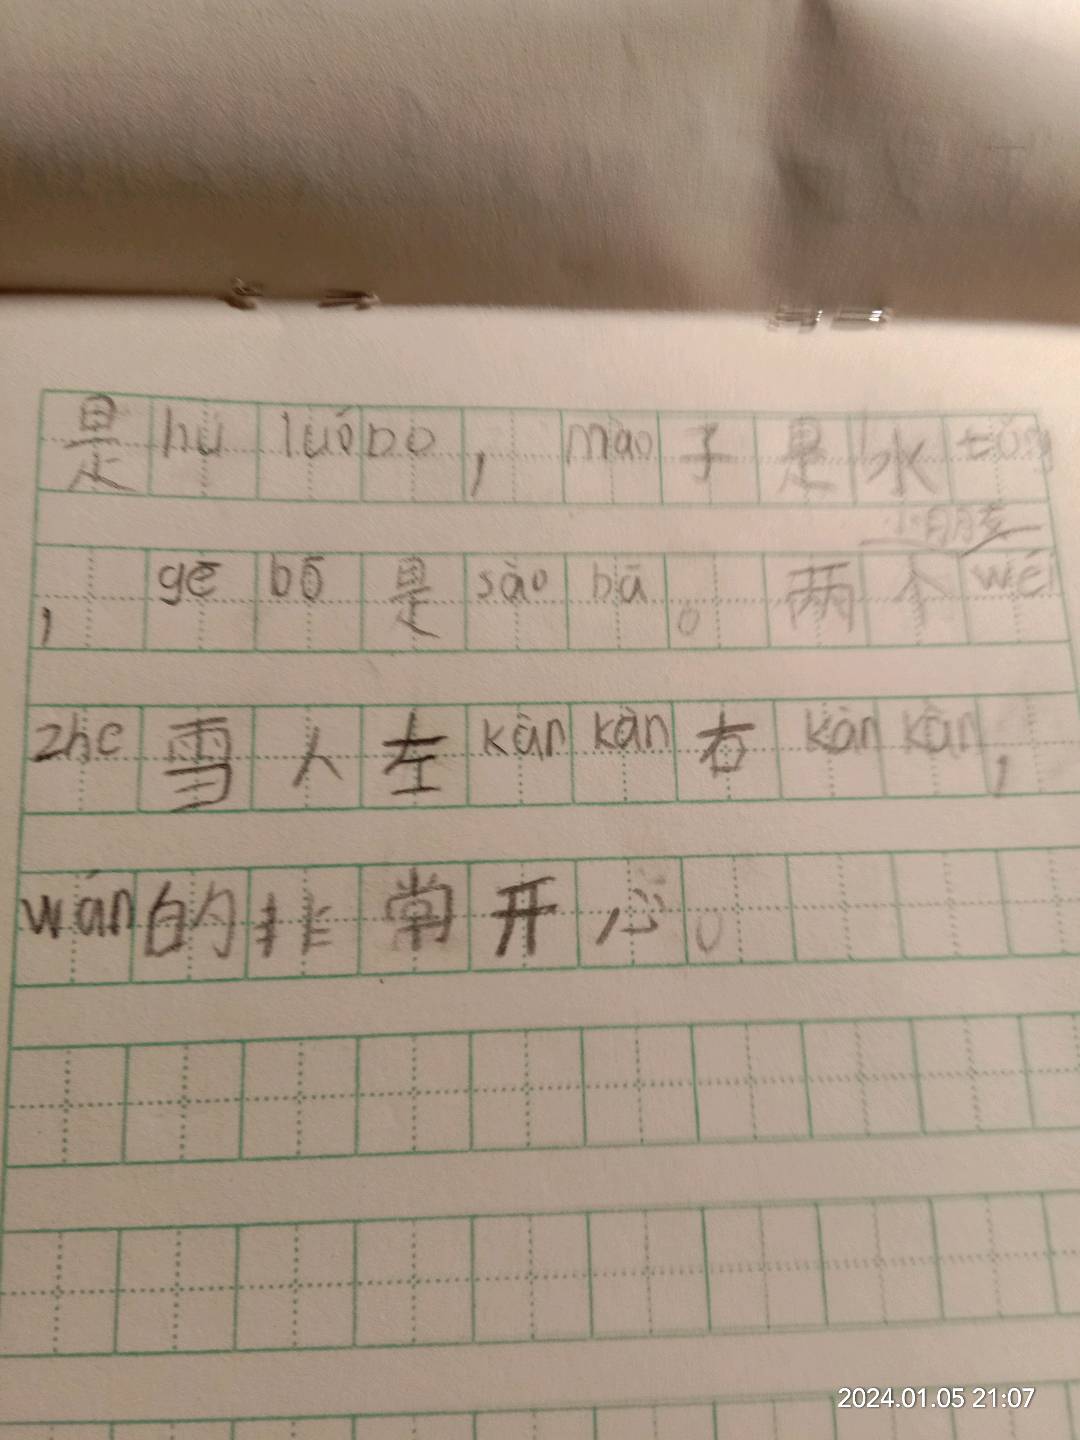 是hú luóbo，mào子是水tǒng
小朋友
，gē bō是sào bā。两个wéi
zhe雪人左kàn kàn右kàn kàn，
wán的非常开心。
2024.01.05 21:07